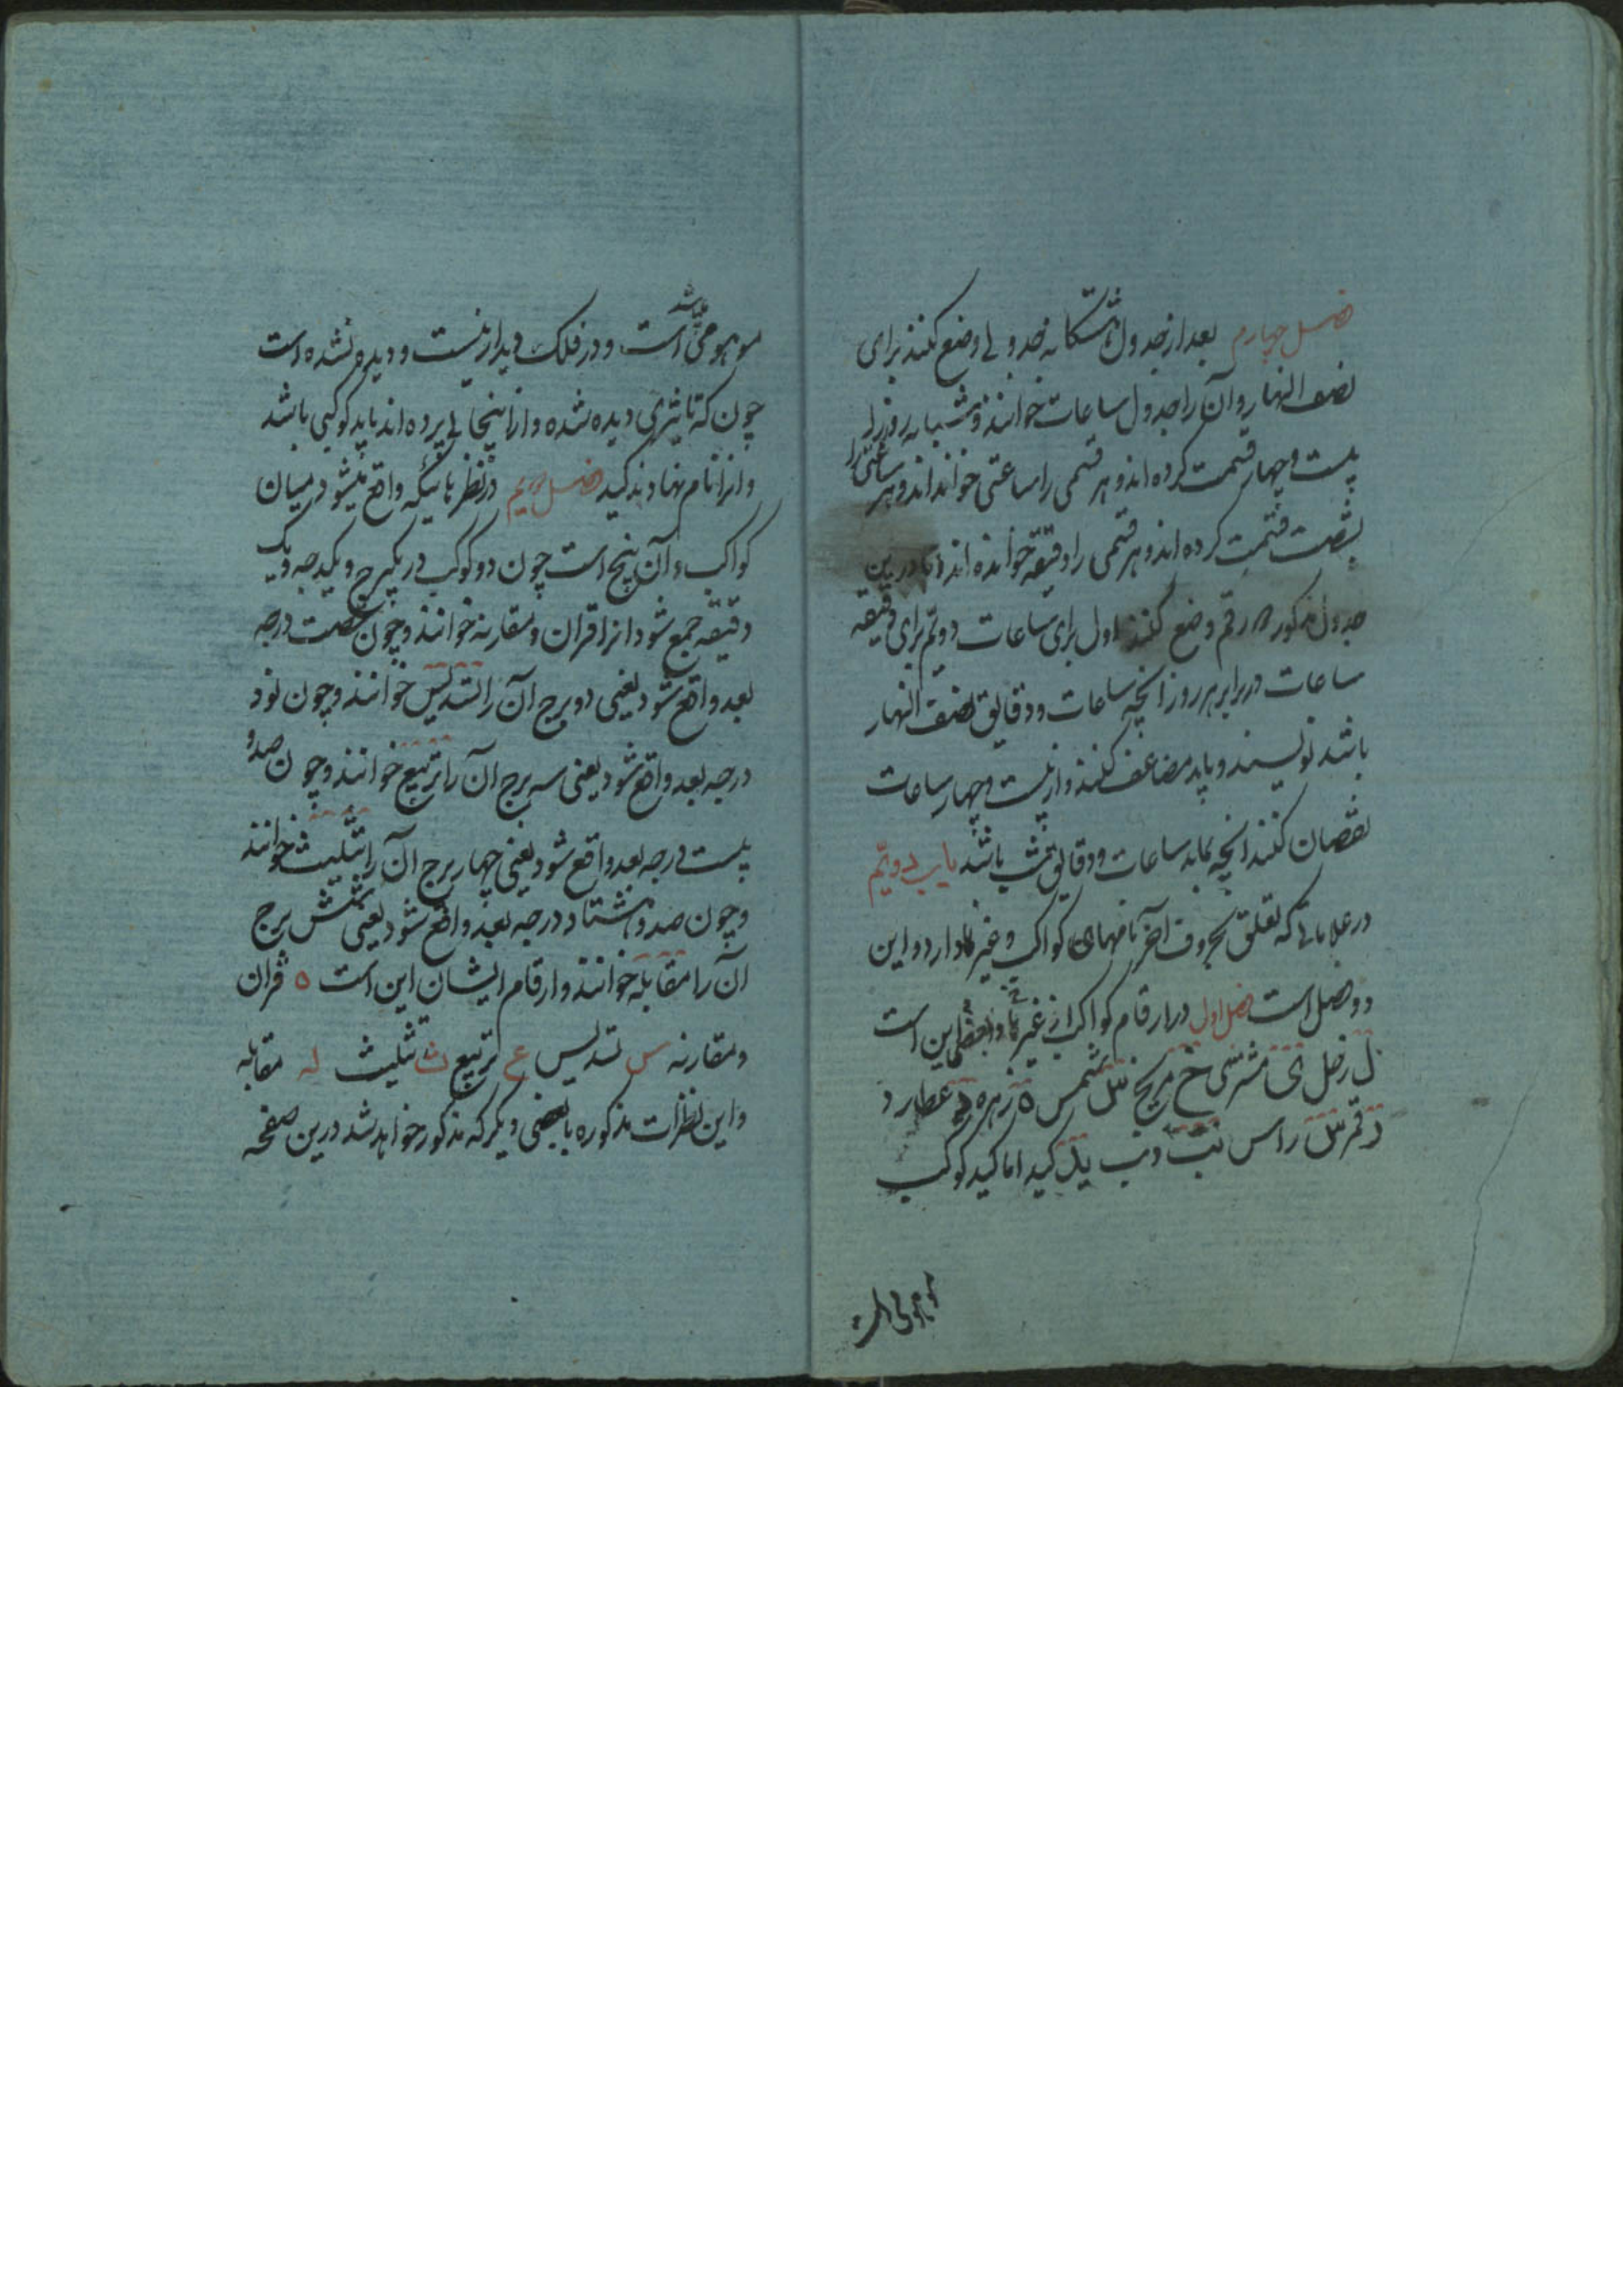 فصل چهارم بعد از جدول هشتگانه جدولی وضع کنند برای
نصف النهار و آن را جدول ساعات خوانند و شبانه روز را
بیست و چهار قسمت کرده اند و هر قسمی را ساعتی خوانده اند و هر ساعتی را
بشصت قسمت کرده اند و هر قسمی را دقیقه خوانده اند اما درین
جدول مذکور رقم وضع کنند اول برای ساعات دویم برای دقیقه
ساعات در برابر هر روز انچه ساعات و دقایق نصف النهار
باشد نویسند و باید مضاعف کنند و از بیست و چهار ساعات
نقصان کنند انچه بماند ساعات و دقایق شب باشد باب دویم
در علاماتی که تعلق بحروف آخر نامهای کواکب و غیرها دارد و این
دو فصل است فصل اول در ارقام کواکب از غیرها این است
ل زحل ی مشتری خ مریخ س شمس ه زهره د عطارد
ر قمر س راس نب ذنب ید کید اما کید کوکب
موهومی است
موهومی است و در فلک دیدار نیست و دیده نشده است
چون که تاثیری دیده شده و از اینجا پی برده اند باید کوکبی باشد
و انرا نام نهادند کید فصل دویم در نظرهائیکه واقع میشود در میان
کواکب و آن پنج است چون دو کوکب در یکبرج و یکدرجه و یک
دقیقه جمع شود انرا قران و مقارنه خوانند و چون شصت درجه
بعد واقع شود یعنی دو برج آن را تسدیس خوانند و چون نود
درجه بعد واقع شود یعنی سه برج آن را تربیع خوانند و چون صد و
بیست درجه بعد واقع شود یعنی چهار برج آن را تثلیث خوانند
و چون صد و هشتاد درجه بعد واقع شود یعنی شش برج
آن را مقابله خوانند و ارقام ایشان این است ه قران
و مقارنه س تسدیس ع تربیع ث تثلیث له مقابله
و این نظرات مذکوره با بعضی دیگر که مذکور خواهد شد درین صفحه